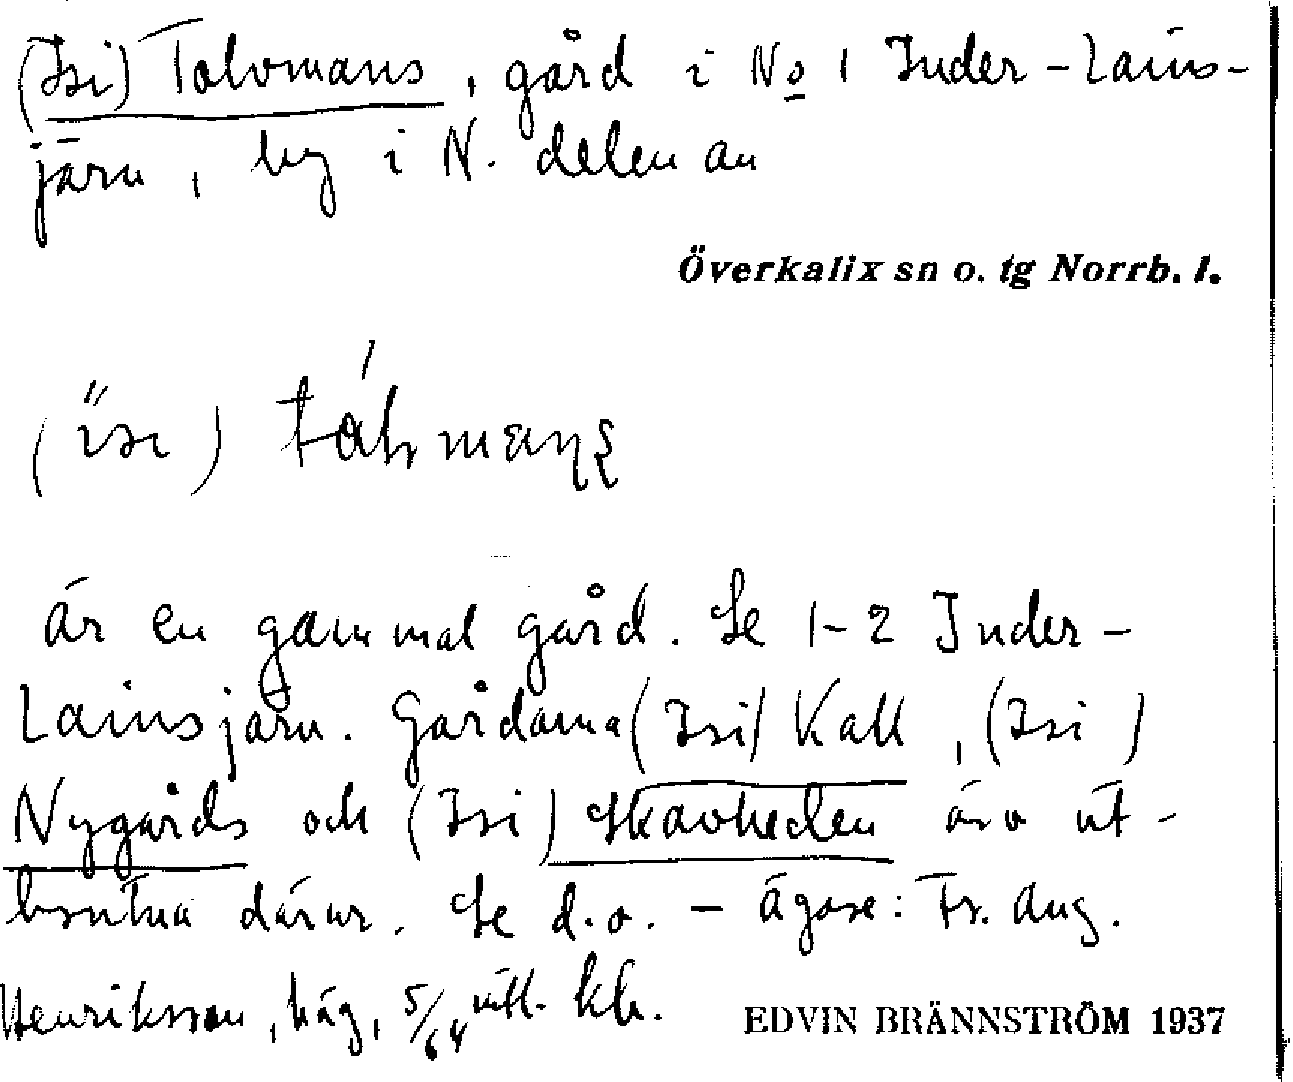 (Isi) Tolvmans, gård i No 1 Inder-Lains-
järv, by i N. delen av
Överkalix sn o. tg Norrb. l.
(isi)
är en gammal gård. Se 1-2 Inder-
Lainsjärv. Gårdarna (Isi) Kall, (Isi)
Nygårds och (Isi) Skavheden äro ut-
brutna därur. Se d.o. – Ägare: Fr. Aug.
Henriksson, häg, 5/64 mtl. kb.
EDVIN BRÄNNSTRÖM 1937